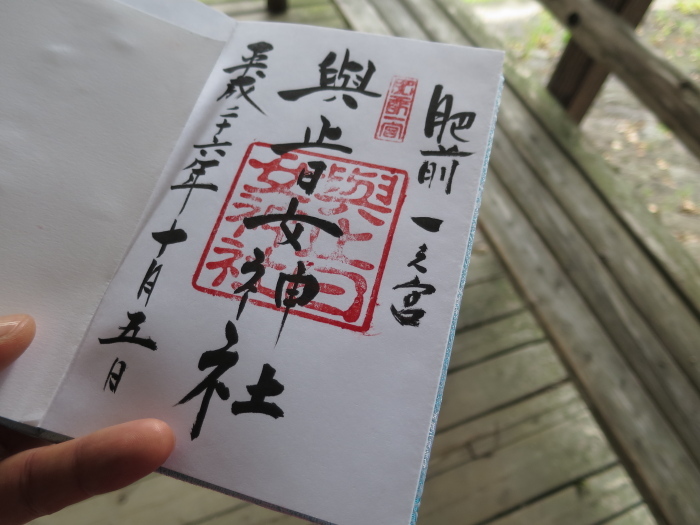 肥前
一之宮
肥前一宮
與止日女神社
與止日
女神
社
平成二十六年十月五日